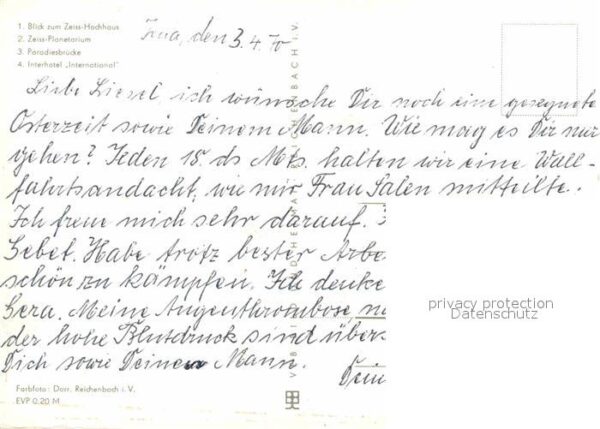 1. Blick zum Zeiss-Hochhaus
2. Zeiss-Planetarium
3. Paradiesbrücke
4. Interhotel „International"
Jena, den 3.4.70
Liebe Liesel, ich wünsche Dir noch eine gesegnete
Osterzeit sowie Deinem Mann. Wie mag es Dir nur
gehen? Jeden 18. ds Mts. halten wir eine Wall-
fahrtsandacht, wie mir Frau Salen mitteilte.
Ich freue mich sehr darauf.
Gebet. Habe trotz bester Arbe
schön zu kämpfen. Ich denke
Gera. Meine Augenthrombose
der hohe Blutdruck sind über
Dich sowie Deinen Mann.
Dein
privacy protection
Datenschutz
Farbfoto: Dorr, Reichenbach i. V.
EVP 0.20 M